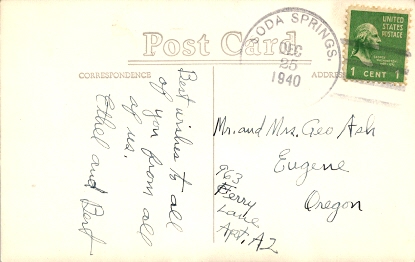 Post Card
CORRESPONDENCE
ADDRESS
SODA SPRINGS.
DEC
25
1940
UNITED STATES
POSTAGE
1 CENT 1
Best wishes to all
of you from all
of us.
Ethel and Bert
Mr. and Mrs. Geo Ash
Eugene
Oregon
963
Ferry
Lane
Apt. A2